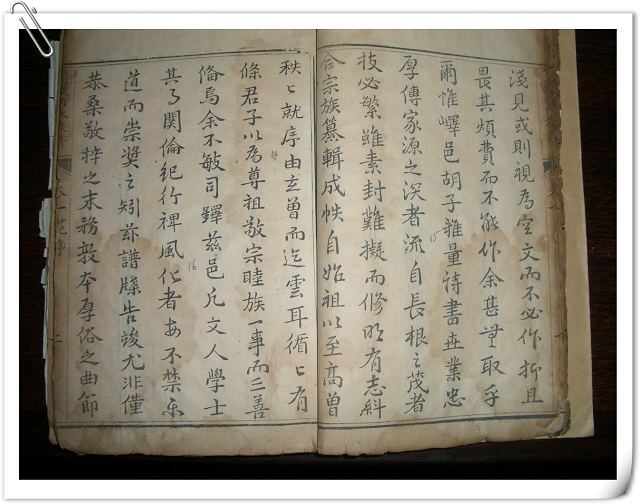 淺見或則視為空文而不必作抑且
畏其煩費而不能作余甚無取乎
爾惟嶧邑胡子雅量詩書世業忠
厚傳家源之深者流自長根之茂者
枝必繁雖素封難擬而修明有志糾
合宗族纂輯成帙自始祖以至高曾
秩〻就序由玄曾而迄雲耳循〻有
條君子以為尊祖敬宗睦族一事而三善
偹焉余不敏司鐸兹邑凡文人學士
其有関倫紀行裨風化者每不禁樂
道而崇獎之矧茲譜牒告竣尤非僅
恭桑敬梓之末務敦本厚俗之曲節
15
16
卷一
范序
二